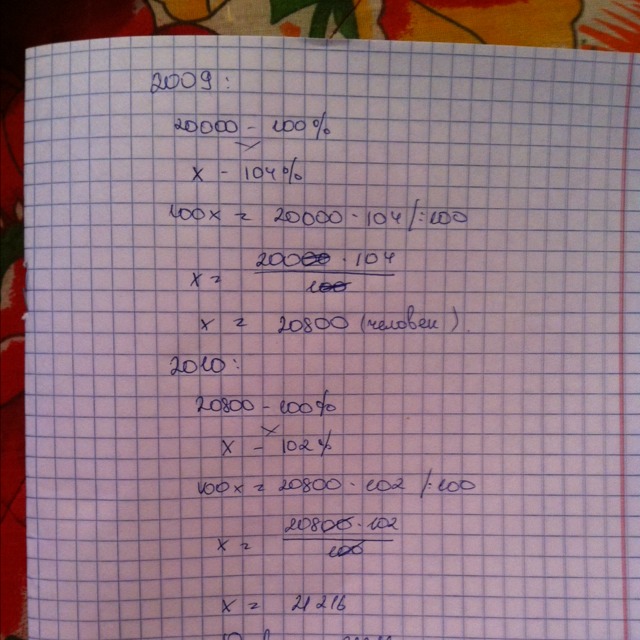 2009:
20000 - 100%
x - 104%
100x = 20000 · 104 /:100
20000 · 104
x = 100
x = 20800 (человек).
2010:
20800 - 100%
x - 102%
100x = 20800 · 102 /:100
20800 · 102
x = 100
x = 21216